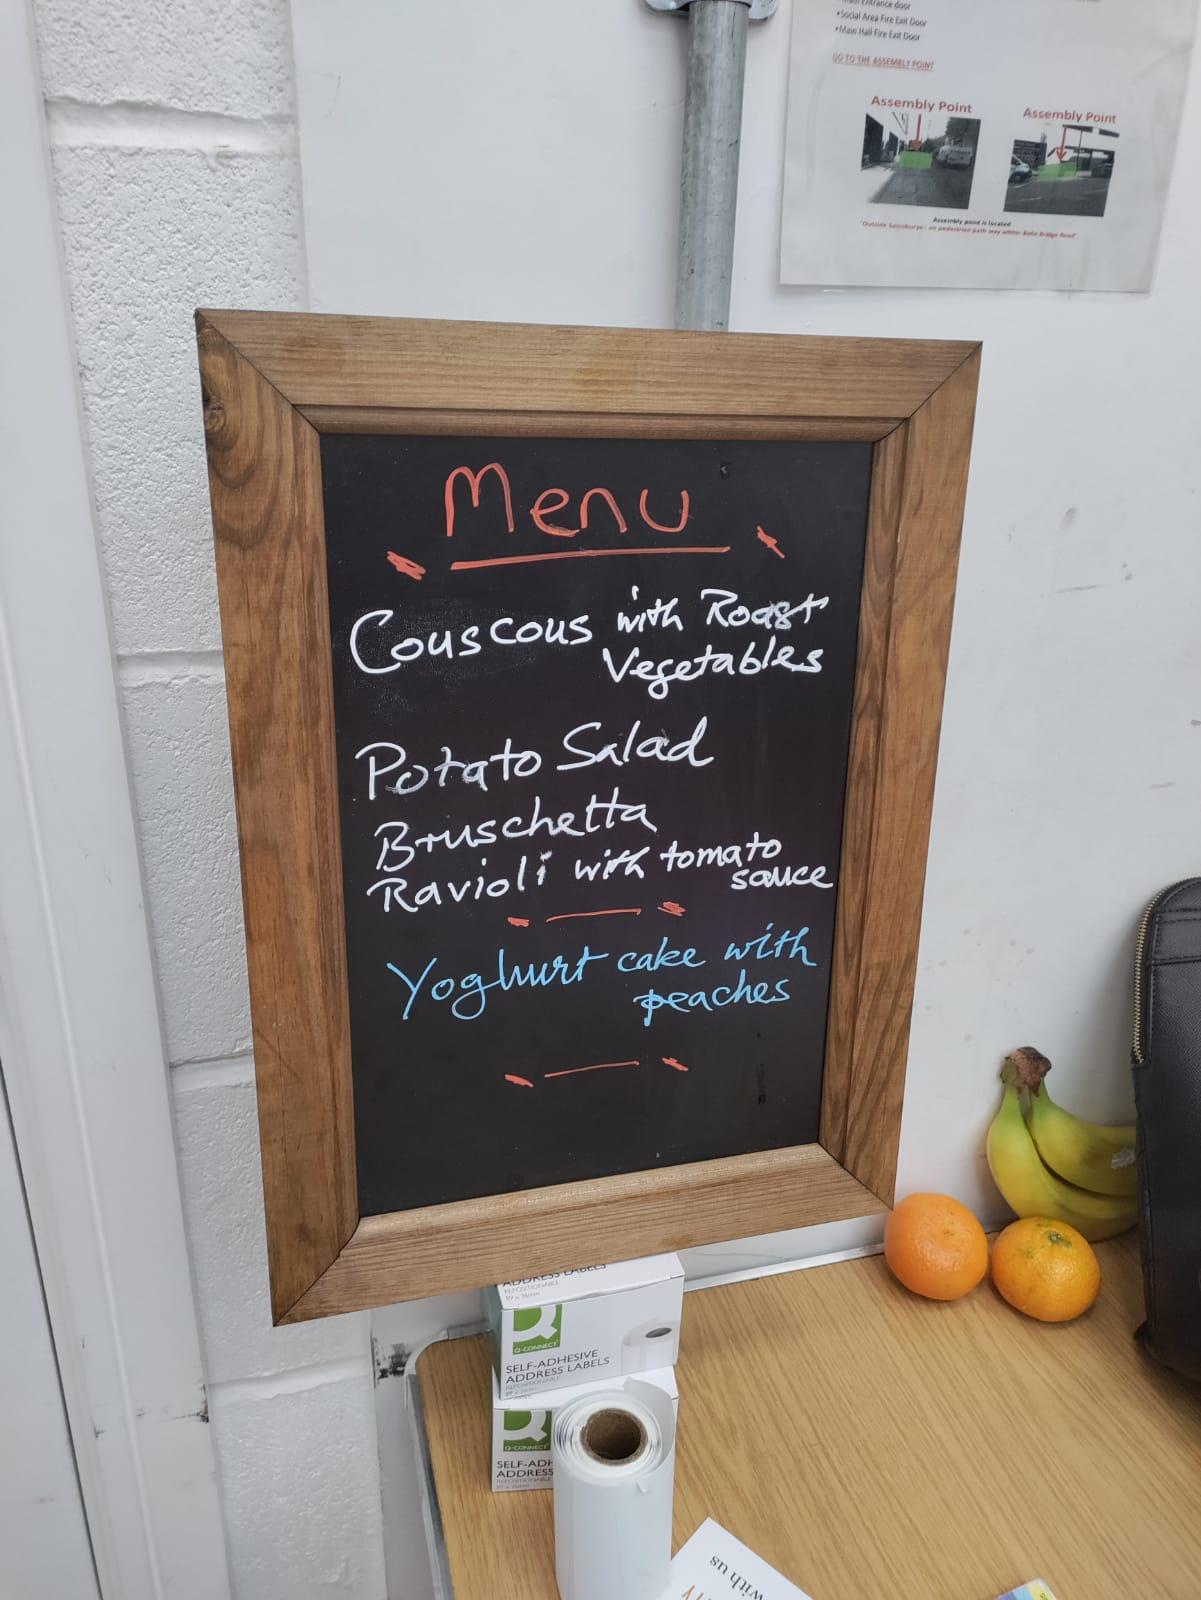 Main Entrance door
•Social Area Fire Exit Door
•Main Hall Fire Exit Door
GO TO THE ASSEMBLY POINT
Assembly Point
Assembly Point
Assembly point is located
"Outside Sainsburys- on pedestrian path way Bridge Road"
Menu
Couscous with Roast
Vegetables
Potato Salad
Bruschetta
Ravioli with tomato
sauce
Yoghurt cake with
peaches
ADDRESS LABELS
REPOSITIONABLE
Q-CONNECT
SELF-ADHESIVE
ADDRESS LABELS
REPOSITIONABLE
Q-CONNECT
SELF-ADH
ADDRESS
with us